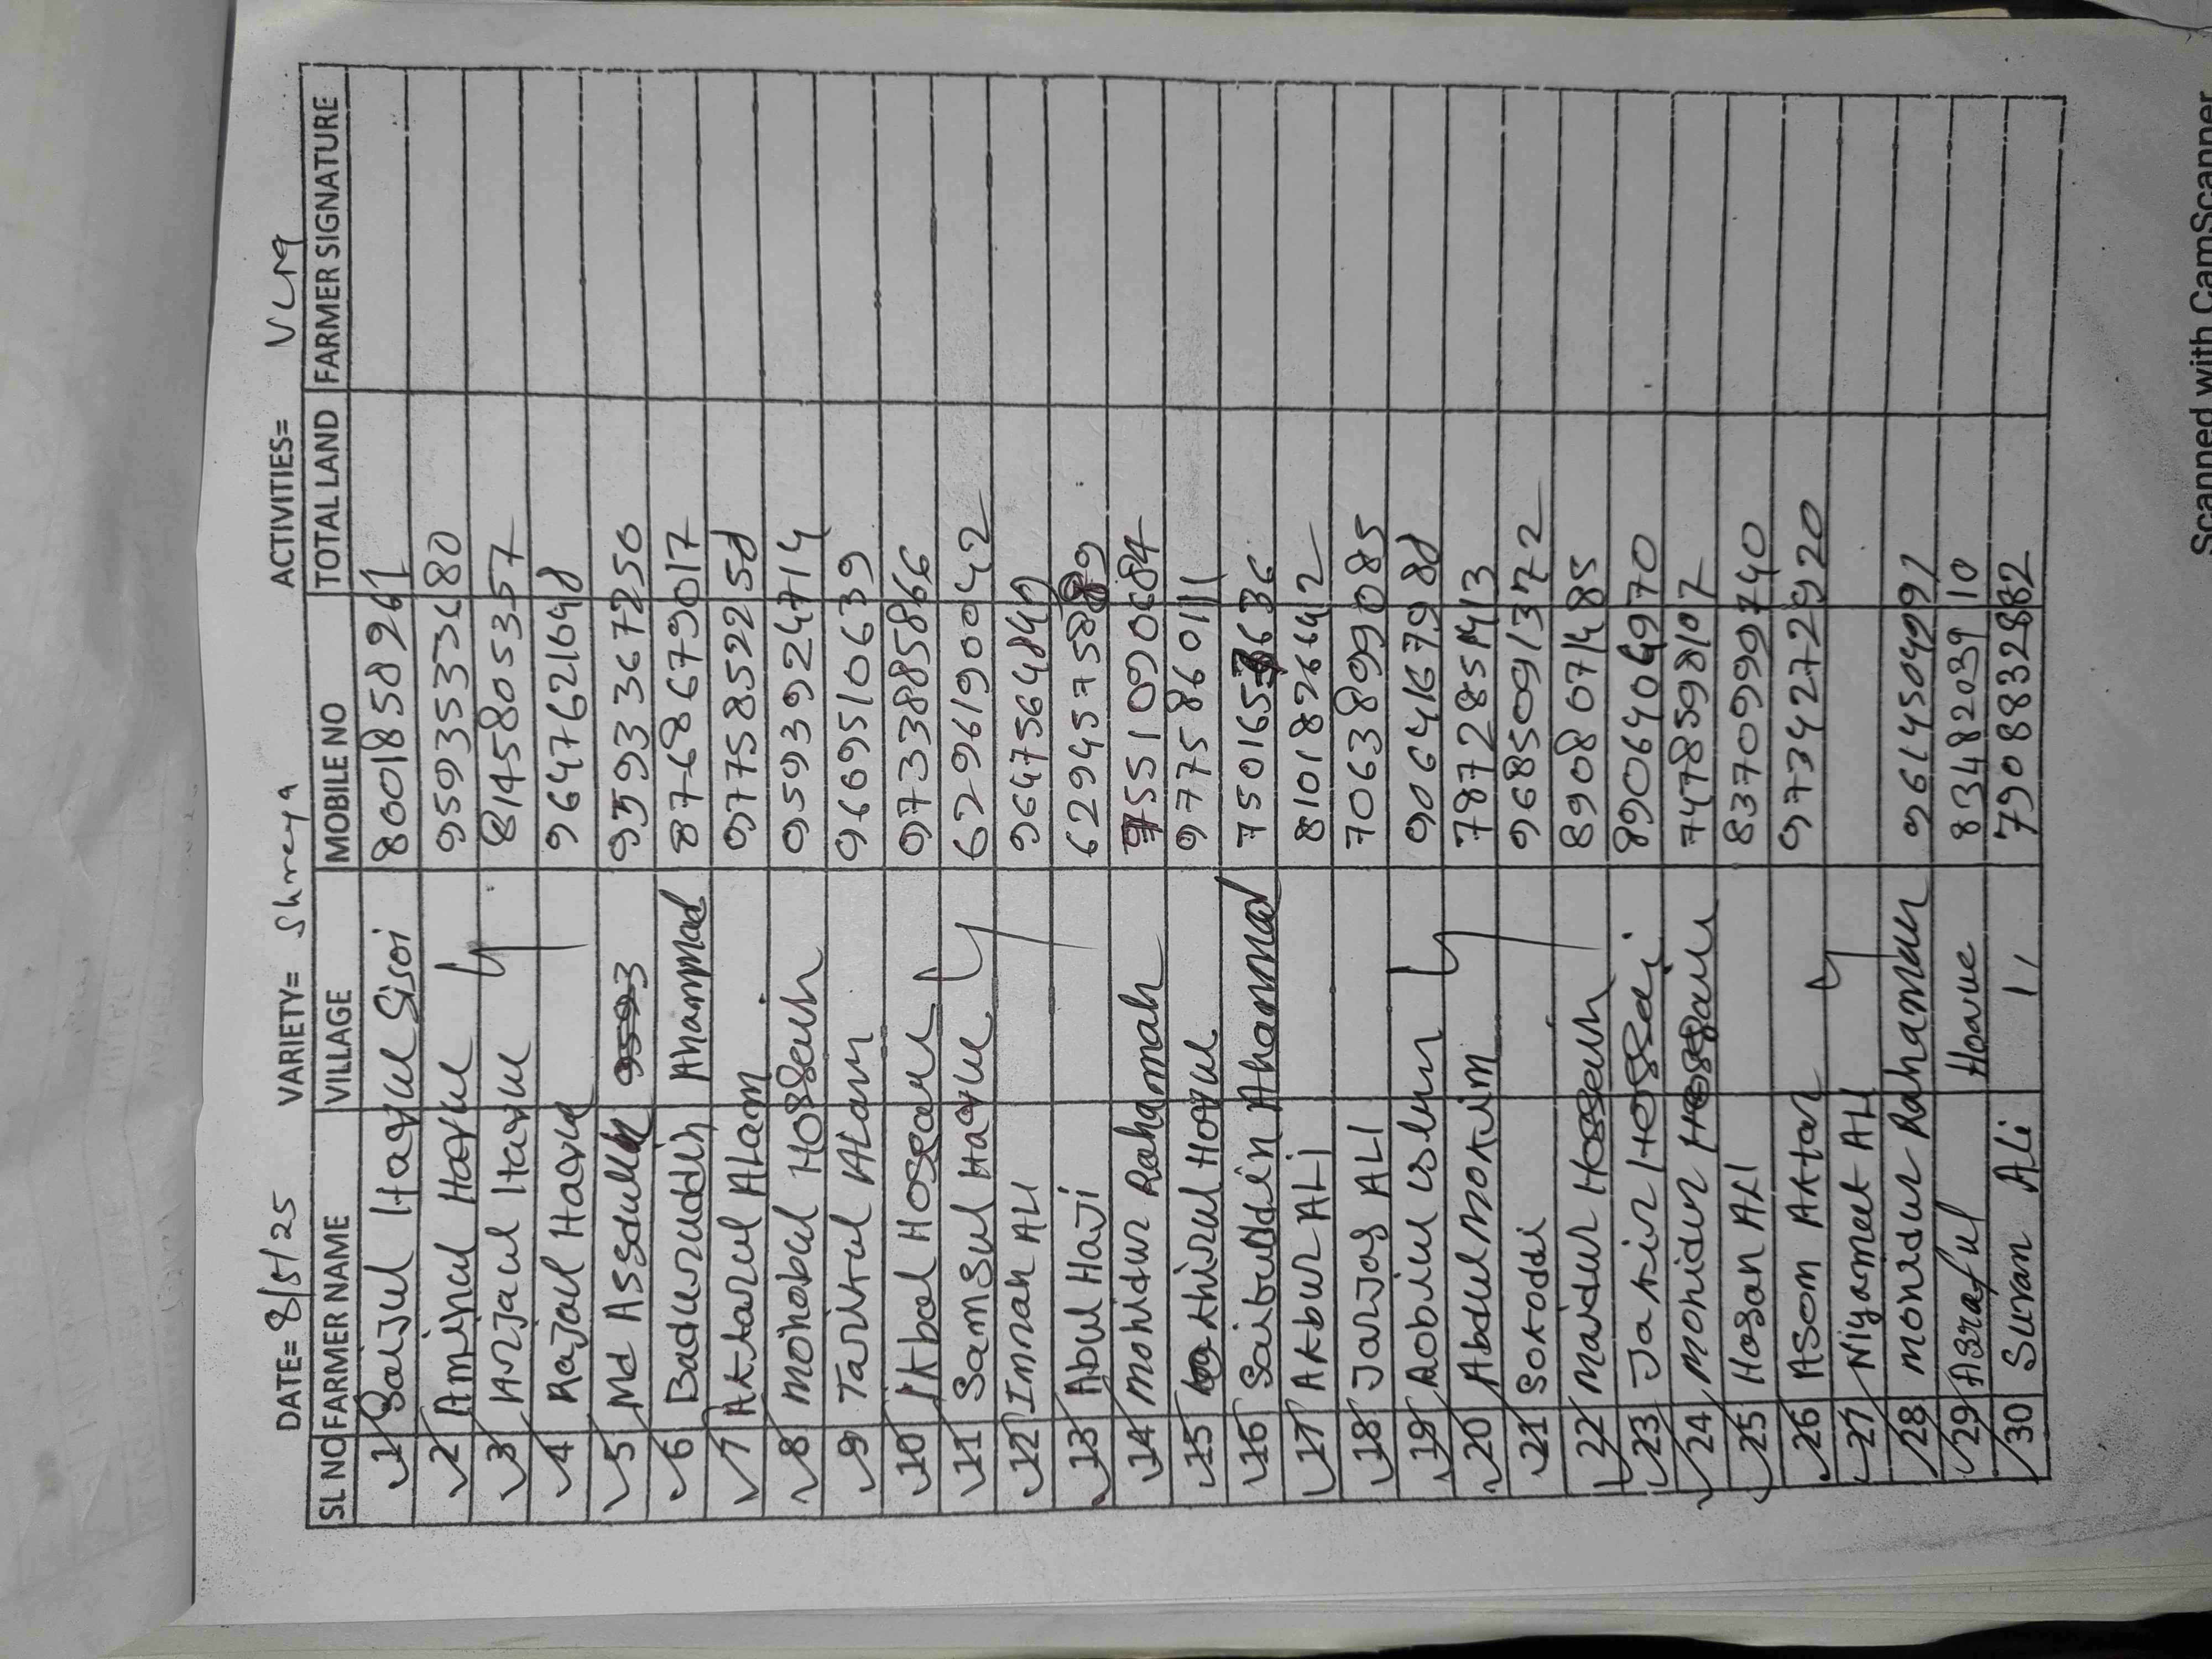 DATE= 8/5/25 VARIETY= Shreya ACTIVITIES= VLM
SL NO FARMER NAME VILLAGE MOBILE NO TOTAL LAND FARMER SIGNATURE
1 Saijul Haqul Sisoi 8001858261
2 Aminul Haqul 9593533680
3 Arjaul Haqul 8145805357
4 Rajaul Haqul 9647621648
5 Md Assdulla 9593367250
6 Badururddin Ahammad 8768679017
7 Aktarul Alam 9775852258
8 Monobul Hosseuh 9593924714
9 Tarikul Alam 9669510639
10 Ikbal Hosear 9733885866
11 Samsul Haque 6296190042
12 Imran ALI 9647564840
13 Abul Haji
14 Mohidur Rahamah 7551090684
15 Khirul Hoqul 9775860111
16 Sairbuddin Ahammad
17 Akbur ALi 8101826642
18 Jarjas ALI 7063899085
19 Aobiul islum 9064167988
20 Abdul Mokim 7872851413
21 Sokoddi 9685091372
22 Maridur Hoseuh 8908071485
23 Jakir Hossei 8906404970
24 Mohidur Hossaiu 7478598107
25 Hosan ALI 8370999740
26 Asom Aktar 9734272920
27 Niyameet ALI
28 Monidur Rahaman 9614504991
29 Asraful Haque 8348203910
30 Suvan Ali 11 7908832882
Scanned with CamScanner